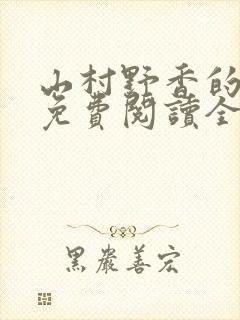 山村野香的
免費閱讀全
黑嚴善宏